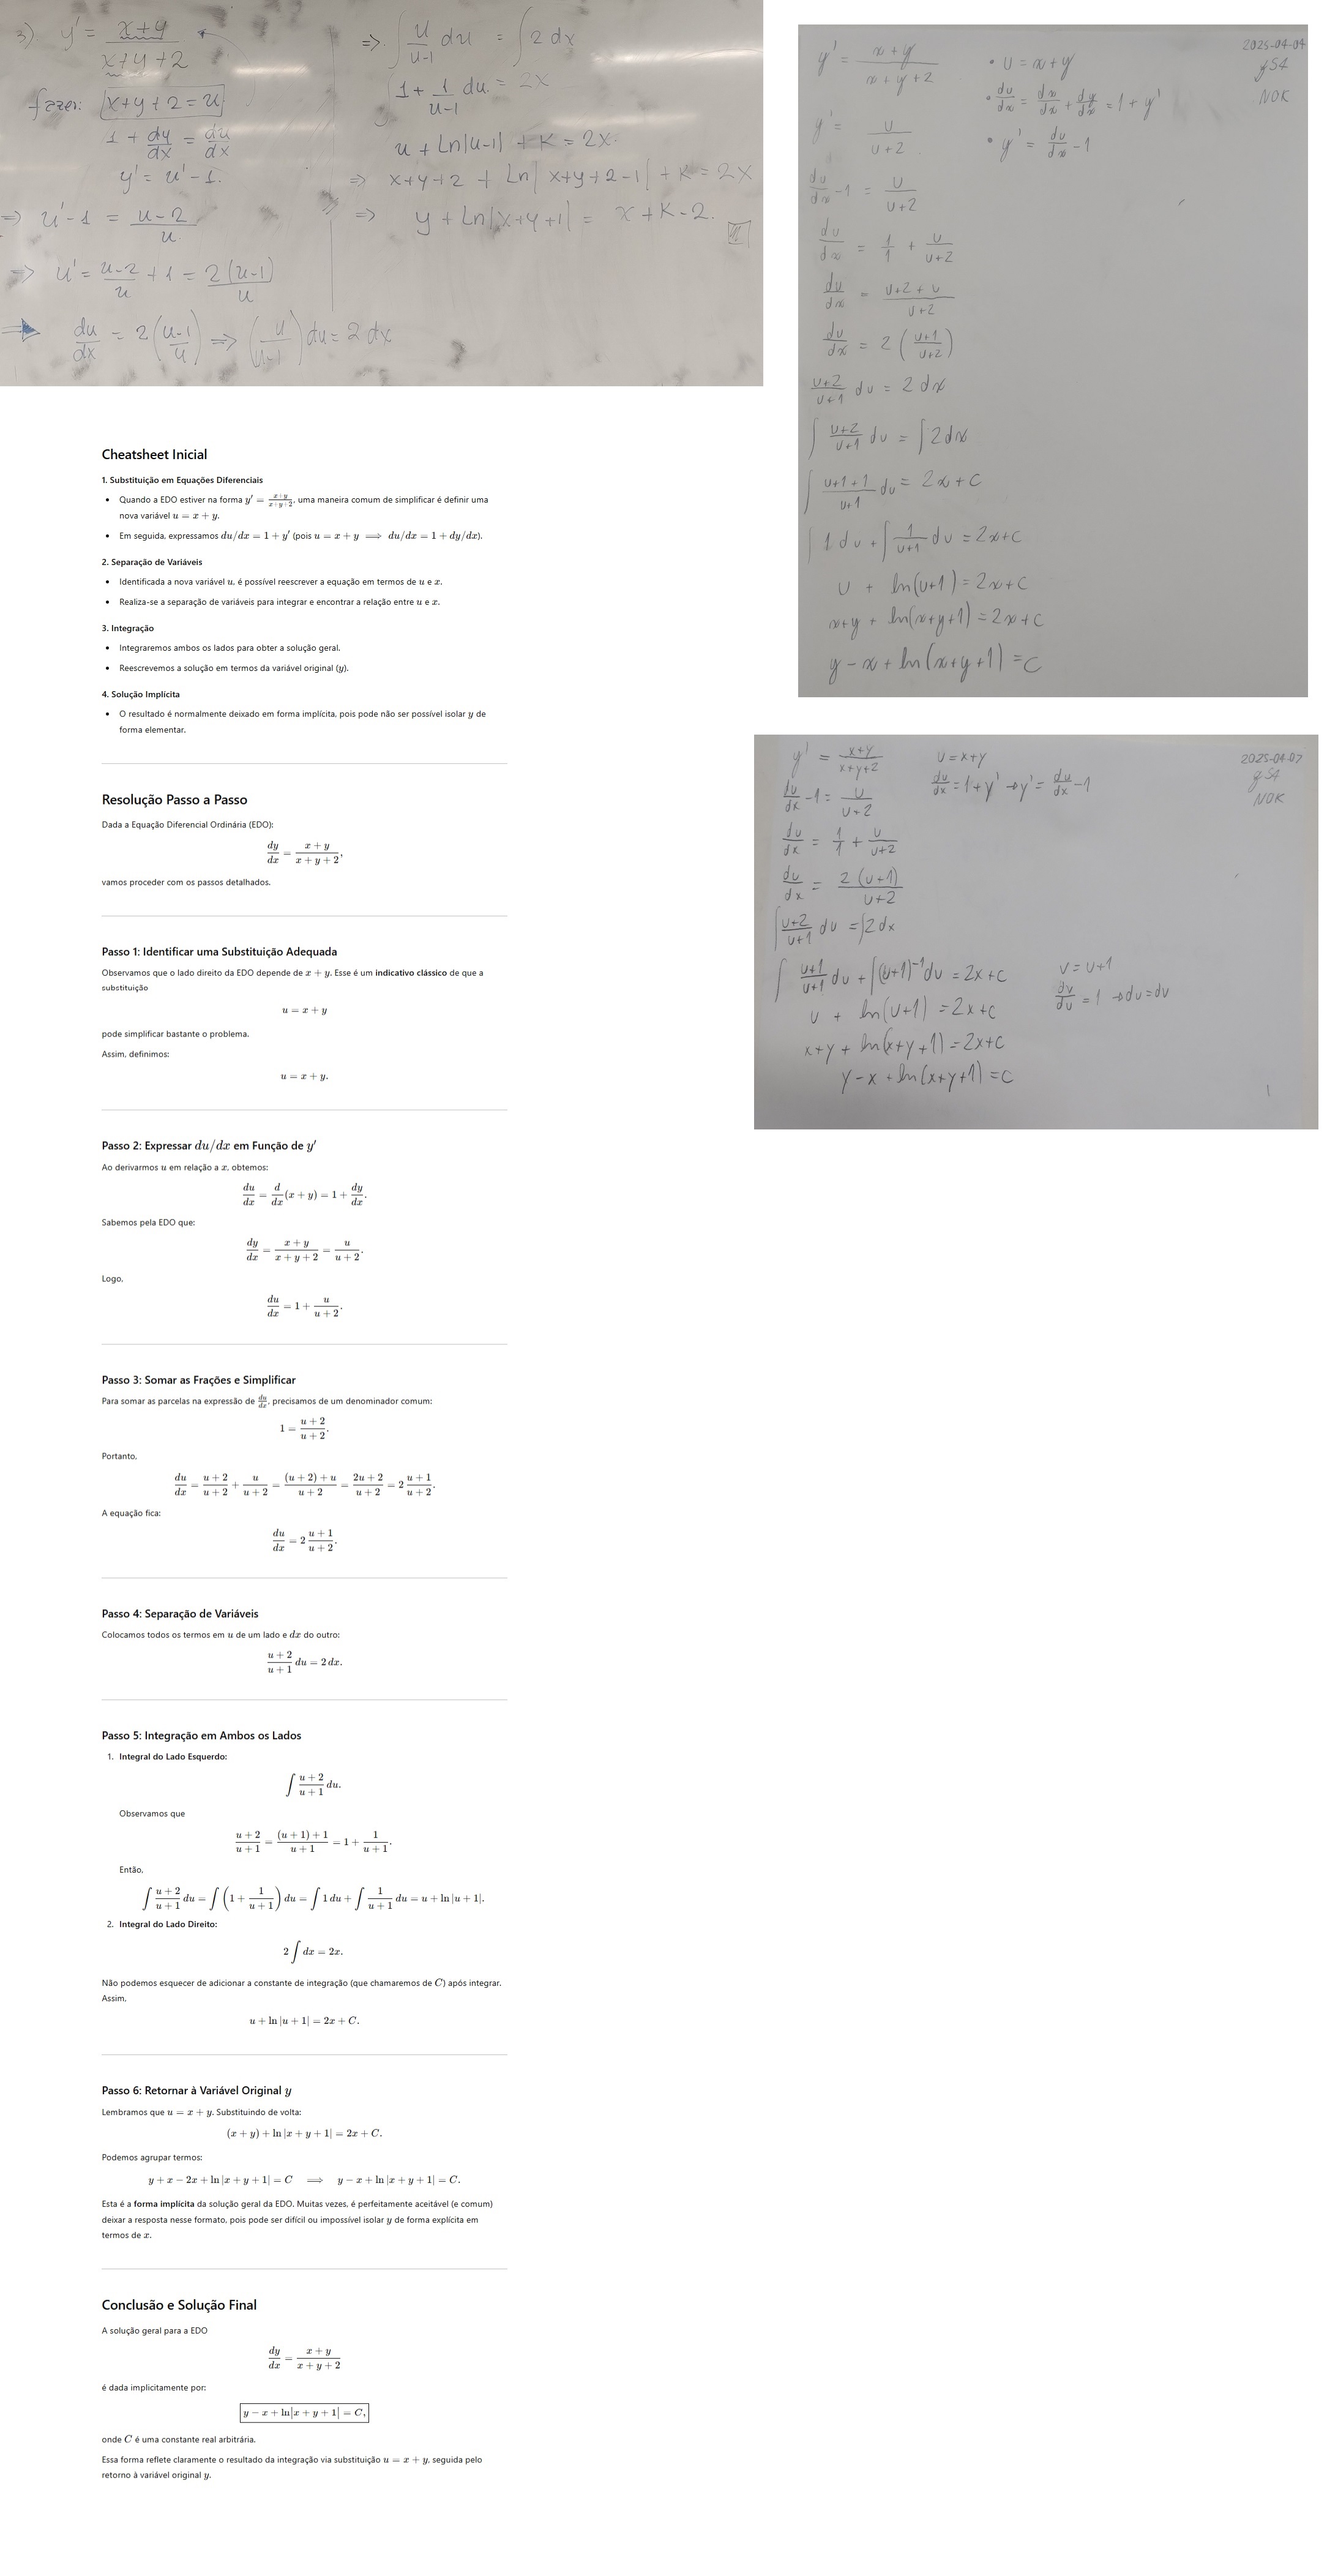 3) y' = x+y / x+y+2
fazer: x+y+2 = u
1 + dy/dx = du/dx
y' = u' - 1.
=> u' - 1 = u-2 / u
=> u' = u-2 / u + 1 = 2(u-1) / u
=> du/dx = 2(u-1 / u) => (u / u-1) du = 2 dx
=> ∫ u / u-1 du = ∫ 2 dx
∫ 1 + 1 / u-1 du = 2x
u + Ln|u-1| + K = 2x.
=> x+y+2 + Ln|x+y+2-1| + K = 2x
=> y + Ln|x+y+1| = x + K - 2.
y' = x+y / x+y+2
y' = u / u+2
du/dx - 1 = u / u+2
du/dx = 1/1 + u / u+2
du/dx = u+2+u / u+2
du/dx = 2 (u+1 / u+2)
u+2 / u+1 du = 2 dx
∫ u+2 / u+1 du = ∫ 2dx
∫ u+1+1 / u+1 du = 2x + C
∫ 1 du + ∫ 1 / u+1 du = 2x+C
u + ln(u+1) = 2x+C
x+y + ln(x+y+1) = 2x+C
y - x + ln(x+y+1) = C
• u = x+y
• du/dx = dx/dx + dy/dx = 1 + y'
• y' = du/dx - 1
2025-04-04
gS4
NOK
Cheatsheet Inicial
1. Substituição em Equações Diferenciais
• Quando a EDO estiver na forma y' = x+y / x+y+2, uma maneira comum de simplificar é definir uma
nova variável u = x + y.
• Em seguida, expressamos du/dx = 1 + y' (pois u = x + y ⟹ du/dx = 1 + dy/dx).
2. Separação de Variáveis
• Identificada a nova variável u, é possível reescrever a equação em termos de u e x.
• Realiza-se a separação de variáveis para integrar e encontrar a relação entre u e x.
3. Integração
• Integraremos ambos os lados para obter a solução geral.
• Reescrevemos a solução em termos da variável original (y).
4. Solução Implícita
• O resultado é normalmente deixado em forma implícita, pois pode não ser possível isolar y de
forma elementar.
Resolução Passo a Passo
Dada a Equação Diferencial Ordinária (EDO):
dy/dx = x + y / x + y + 2,
vamos proceder com os passos detalhados.
Passo 1: Identificar uma Substituição Adequada
Observamos que o lado direito da EDO depende de x + y. Esse é um indicativo clássico de que a
substituição
u = x + y
pode simplificar bastante o problema.
Assim, definimos:
u = x + y.
Passo 2: Expressar du/dx em Função de y'
Ao derivarmos u em relação a x, obtemos:
du/dx = d/dx (x + y) = 1 + dy/dx.
Sabemos pela EDO que:
dy/dx = x + y / x + y + 2 = u / u + 2.
Logo,
du/dx = 1 + u / u + 2.
Passo 3: Somar as Frações e Simplificar
Para somar as parcelas na expressão de du/dx, precisamos de um denominador comum:
1 = u + 2 / u + 2.
Portanto,
du/dx = u + 2 / u + 2 + u / u + 2 = (u + 2) + u / u + 2 = 2u + 2 / u + 2 = 2 u + 1 / u + 2.
A equação fica:
du/dx = 2 u + 1 / u + 2.
Passo 4: Separação de Variáveis
Colocamos todos os termos em u de um lado e dx do outro:
u + 2 / u + 1 du = 2 dx.
Passo 5: Integração em Ambos os Lados
1. Integral do Lado Esquerdo:
∫ u + 2 / u + 1 du.
Observamos que
u + 2 / u + 1 = (u + 1) + 1 / u + 1 = 1 + 1 / u + 1.
Então,
∫ u + 2 / u + 1 du = ∫ (1 + 1 / u + 1) du = ∫ 1 du + ∫ 1 / u + 1 du = u + ln |u + 1|.
2. Integral do Lado Direito:
2 ∫ dx = 2x.
Não podemos esquecer de adicionar a constante de integração (que chamaremos de C) após integrar.
Assim,
u + ln |u + 1| = 2x + C.
Passo 6: Retornar à Variável Original y
Lembramos que u = x + y. Substituindo de volta:
(x + y) + ln |x + y + 1| = 2x + C.
Podemos agrupar termos:
y + x − 2x + ln |x + y + 1| = C ⟹ y − x + ln |x + y + 1| = C.
Esta é a forma implícita da solução geral da EDO. Muitas vezes, é perfeitamente aceitável (e comum)
deixar a resposta nesse formato, pois pode ser difícil ou impossível isolar y de forma explícita em
termos de x.
Conclusão e Solução Final
A solução geral para a EDO
dy/dx = x + y / x + y + 2
é dada implicitamente por:
y − x + ln|x + y + 1| = C,
onde C é uma constante real arbitrária.
Essa forma reflete claramente o resultado da integração via substituição u = x + y, seguida pelo
retorno à variável original y.
y' = x+y / x+y+2
du/dx - 1 = u / u+2
du/dx = 1/1 + u / u+2
du/dx = 2 (u+1) / u+2
∫ u+2 / u+1 du = ∫ 2dx
∫ u+1 / u+1 du + ∫ (u+1)^-1 du = 2x+C
u + ln(u+1) = 2x+C
x+y + ln(x+y+1) = 2x+C
y - x + ln(x+y+1) = C
u = x+y
du/dx = 1+y' → y' = du/dx - 1
v = u+1
dv/du = 1 → du = dv
2025-04-07
gS4
NOK